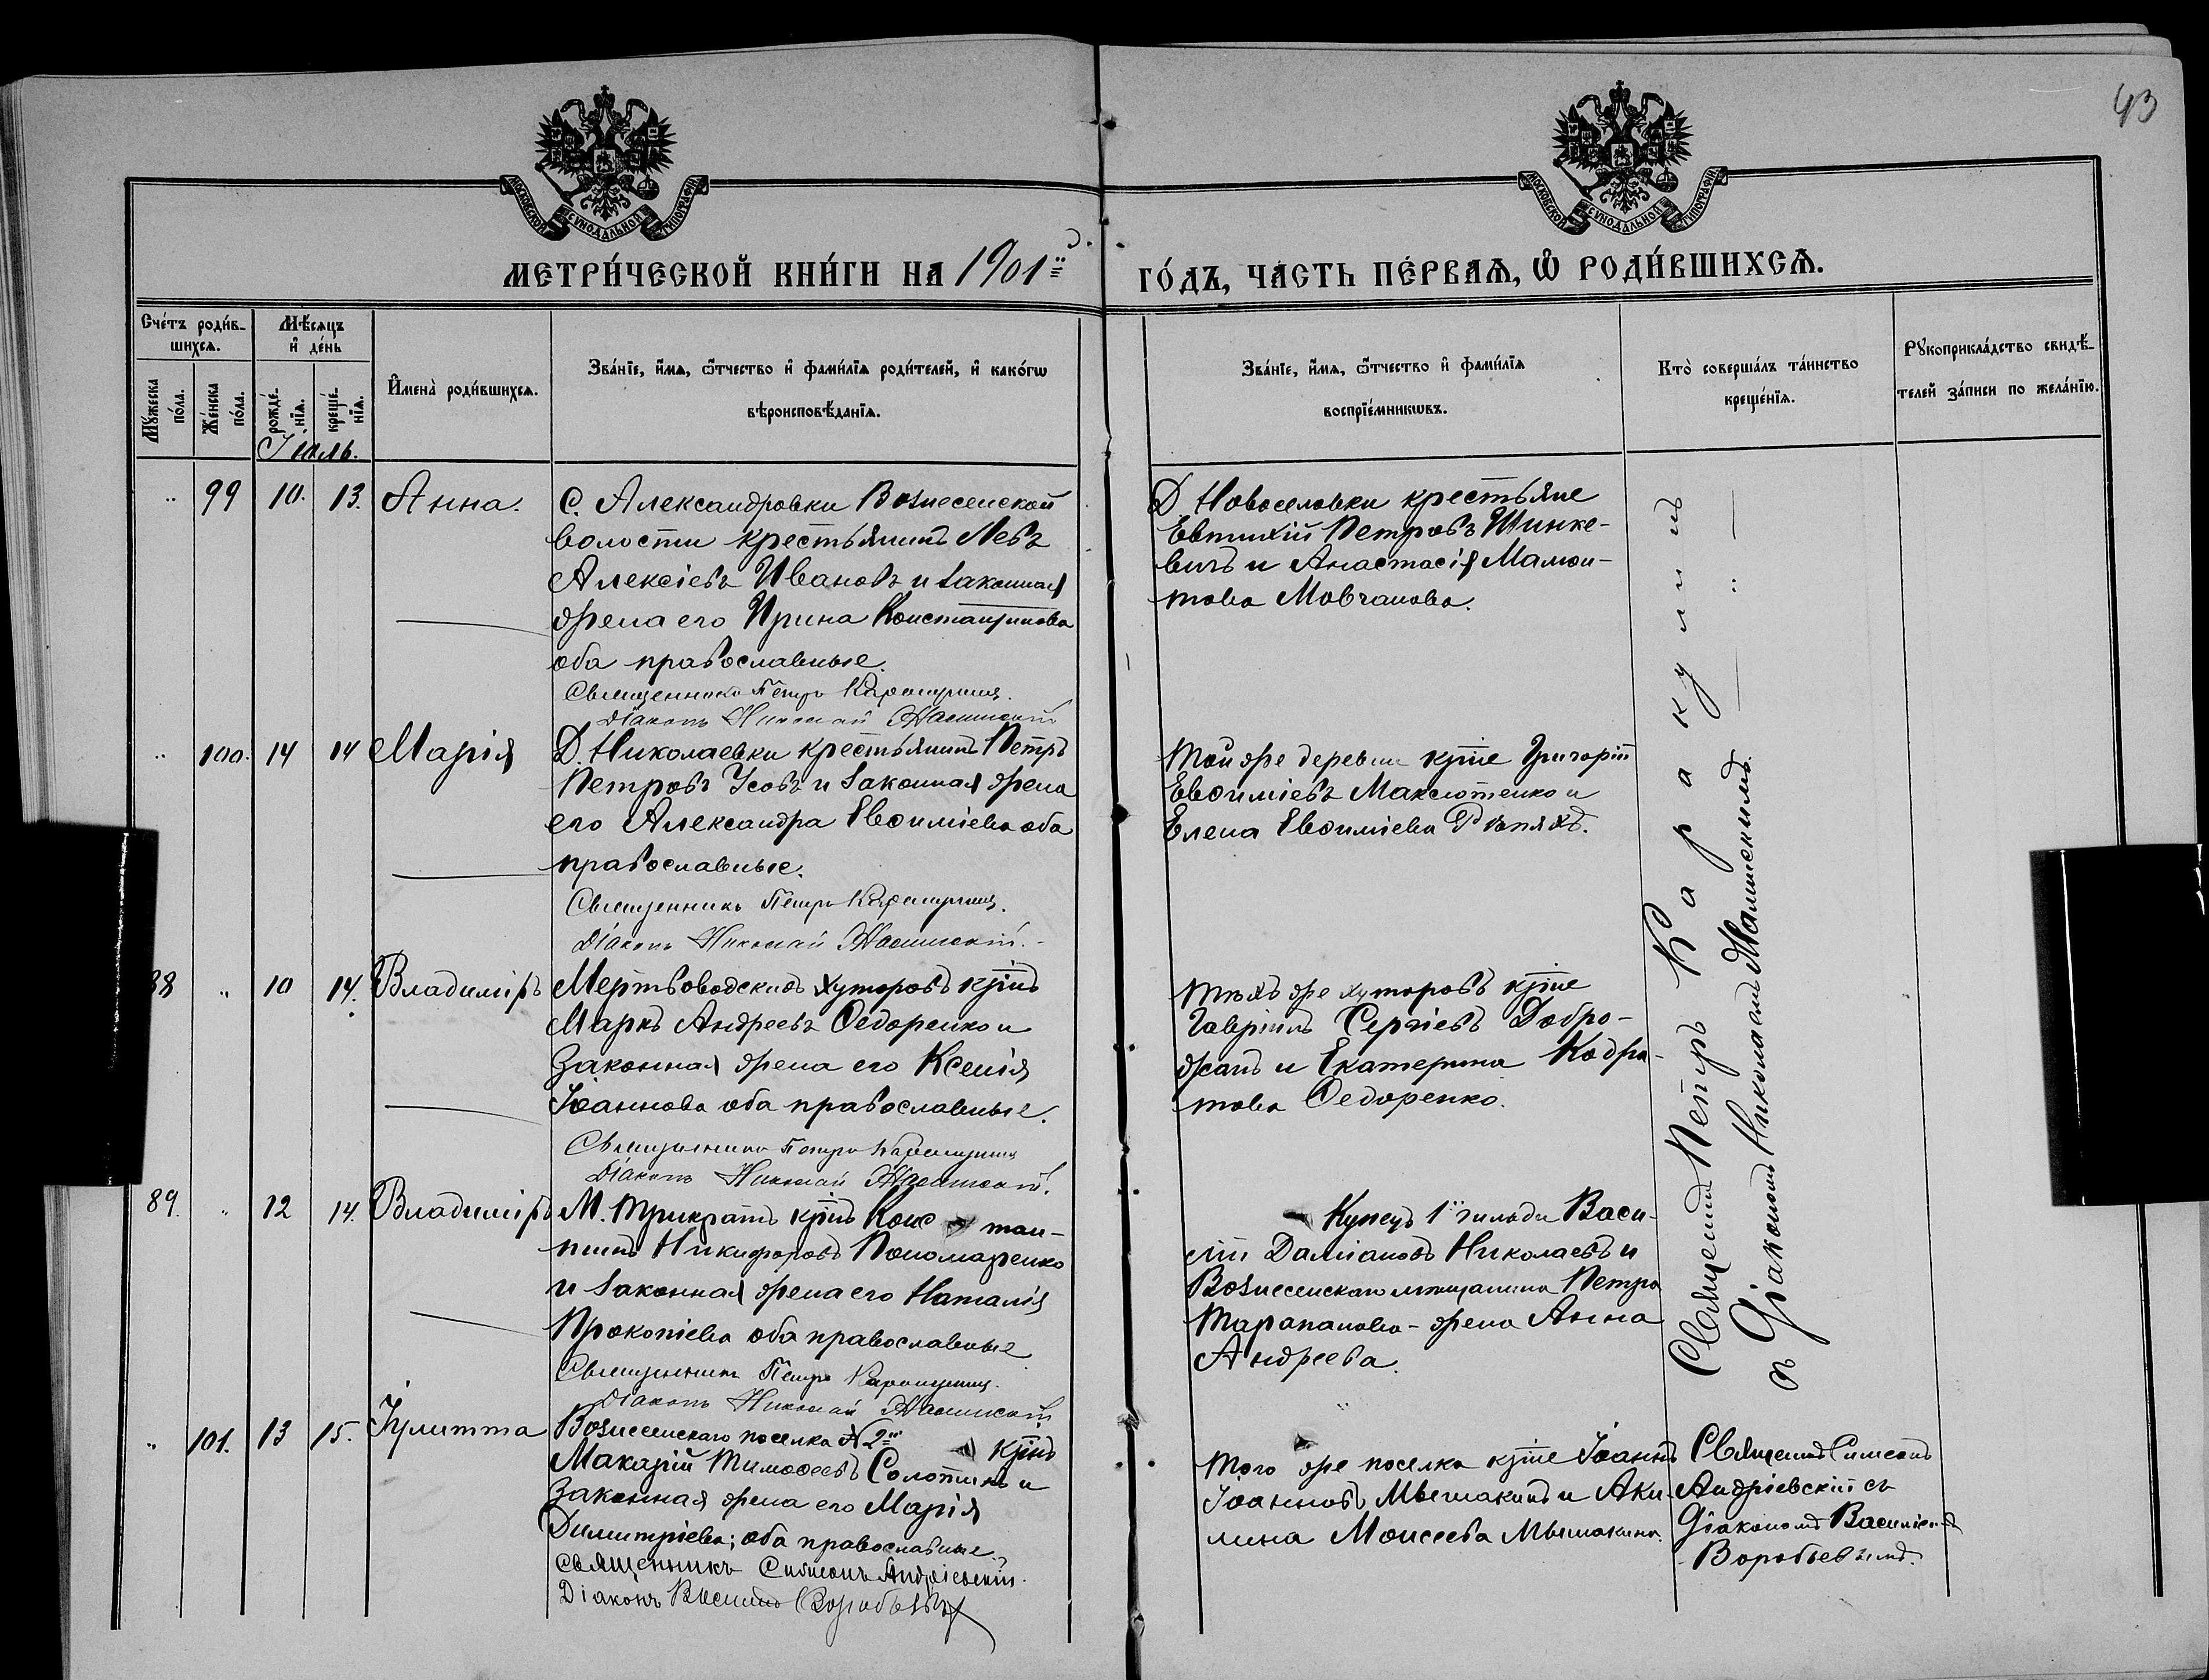 43
МОСКОВСКОЙ СУНОДАЛЬНОЙ ТИПОГРАФІИ
МОСКОВСКОЙ СУНОДАЛЬНОЙ ТИПОГРАФІИ
МЕТРИ́ЧЕСКОЙ КНИ́ГИ НА 1901й
ГО́ДЪ, ЧА́СТЬ ПЕ́РВАѦ, Ѽ РОДИ́ВШИХСѦ.
Сче́тъ роди́в-
шихсѧ.
Мꙋ́жеска по́ла.
Же́нска по́ла.
Мѣ́сѧцъ
и҆ де́нь
рожде́-
нїѧ.
креще́-
нїѧ.
И҆мена̀ роди́вшихсѧ.
Зва́нїе, и҆́мѧ, ѻ҆́тчество и҆ фами́лїѧ роди́телей, и҆ како́гѡ
вѣроисповѣ́данїѧ.
Зва́нїе, и҆́мѧ, ѻ҆́тчество и҆ фами́лїѧ
воспрїе́мникѡвъ.
Кто̀ соверша́лъ та́инство
креще́нїѧ.
Рꙋкоприкла́дство свидѣ́-
телей за́писи по жела́нїю.
Іюль.
" 99 10. 13. Анна.
С. Александровки Вознесенской
волости крестьянинъ Левъ
Алексіевъ Ивановъ и законная
жена его Ирина Константинова
оба православные.
Священникъ Петръ
Діаконъ Николай
Д. Новоселовки крестьяне
Евтихій Петровъ Шинке-
вичъ и Анастасія Мамон-
това Мовчанова.
" 100. 14 14 Марія
Д. Николаевки крестьянинъ Петръ
Петровъ Усовъ и законная жена
его Александра Евѳиміева оба
православные.
Священникъ Петръ
Діаконъ Николай
Той же деревни кр̅не Григорій
Евѳиміевъ Максютенко и
Елена Евѳиміева
88 " 10 14. Владиміръ
Мертвоводскихъ хуторовъ кр̅нъ
Маркъ Андреевъ Ѳедоренко и
законная жена его Ксенія
Іоаннова оба православные.
Священникъ Петръ
Діаконъ Николай
Тѣхъ же хуторовъ кр̅не
Гавріилъ Сергіевъ Добро-
жанъ и Екатерина Кодра-
това Ѳедоренко.
89. " 12 14. Владиміръ
М. Трикратъ кр̅нъ Конс тан-
тинъ Никифоровъ Пономаренко
и законная жена его Наталія
Прокопіева оба православные
Священникъ Петръ
Діаконъ Николай
Купецъ 1й гильди Васи-
лій Даміановъ Николаевъ и
Вознесенскаго мѣщанина Петра
Тарапанова - жена Анна
Андреева.
Священникъ Петръ Каракулинъ
съ Діакономъ Николаемъ
" 101. 13 15. Іулитта
Вознесенскаго поселка №2й кр̅нъ
Макарій Тимоѳеевъ Солотинъ и
законная жена его Марія
Димитріева; оба православные.
Священникъ Симеонъ Андріевскій.
Діаконъ Василій Воробьевъ
Того же поселка кр̅не Іоаннъ
Іоанновъ Мышакинъ и Аки-
лина Моисеева Мышакина.
Священникъ Симеонъ
Андріевскій съ
Діакономъ Василіемъ
Воробьевымъ.